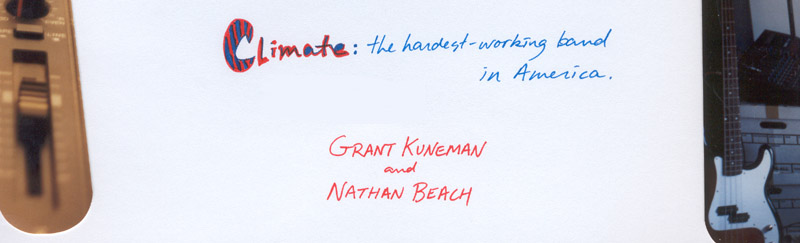 Climate: the hardest-working band
in America.
GRANT KUNEMAN
and
NATHAN BEACH